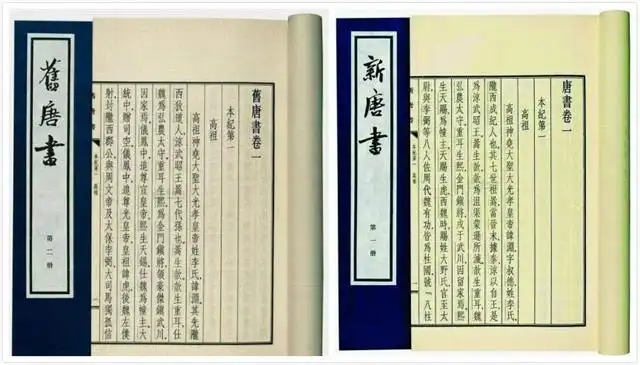 舊唐書
第二冊
舊唐書卷一
本紀第一
高祖
高祖神堯大聖大光孝皇帝姓李氏,諱淵。其先隴
西狄道人,涼武昭王暠七代孫也。暠生歆。歆生重耳,仕
魏為弘農太守。重耳生熙,為金門鎮將,領豪傑鎮武川,
因家焉。儀鳳中,追尊宣皇帝。熙生天錫,仕魏為幢主。大
統中,贈司空。儀鳳中,追尊光皇帝。皇祖諱虎,後魏左僕
射,封隴西郡公,與周文帝及太保李弼、大司馬獨孤信
本紀第一 高祖
新唐書
第一冊
唐書卷一
本紀第一
高祖
高祖神堯大聖大光孝皇帝諱淵,字叔德,姓李氏,
隴西成紀人也。其七世祖暠,當晉末,據秦、涼以自王,是
為涼武昭王。暠生歆,歆為沮渠蒙遜所滅。歆生重耳,魏
弘農太守。重耳生熙,金門鎮將,戍于武川,因留家焉。熙
生天賜,為幢主。天賜生虎,西魏時,賜姓大野氏,官至太
尉,與李弼等八人佐周代魏有功,皆為柱國,號「八柱